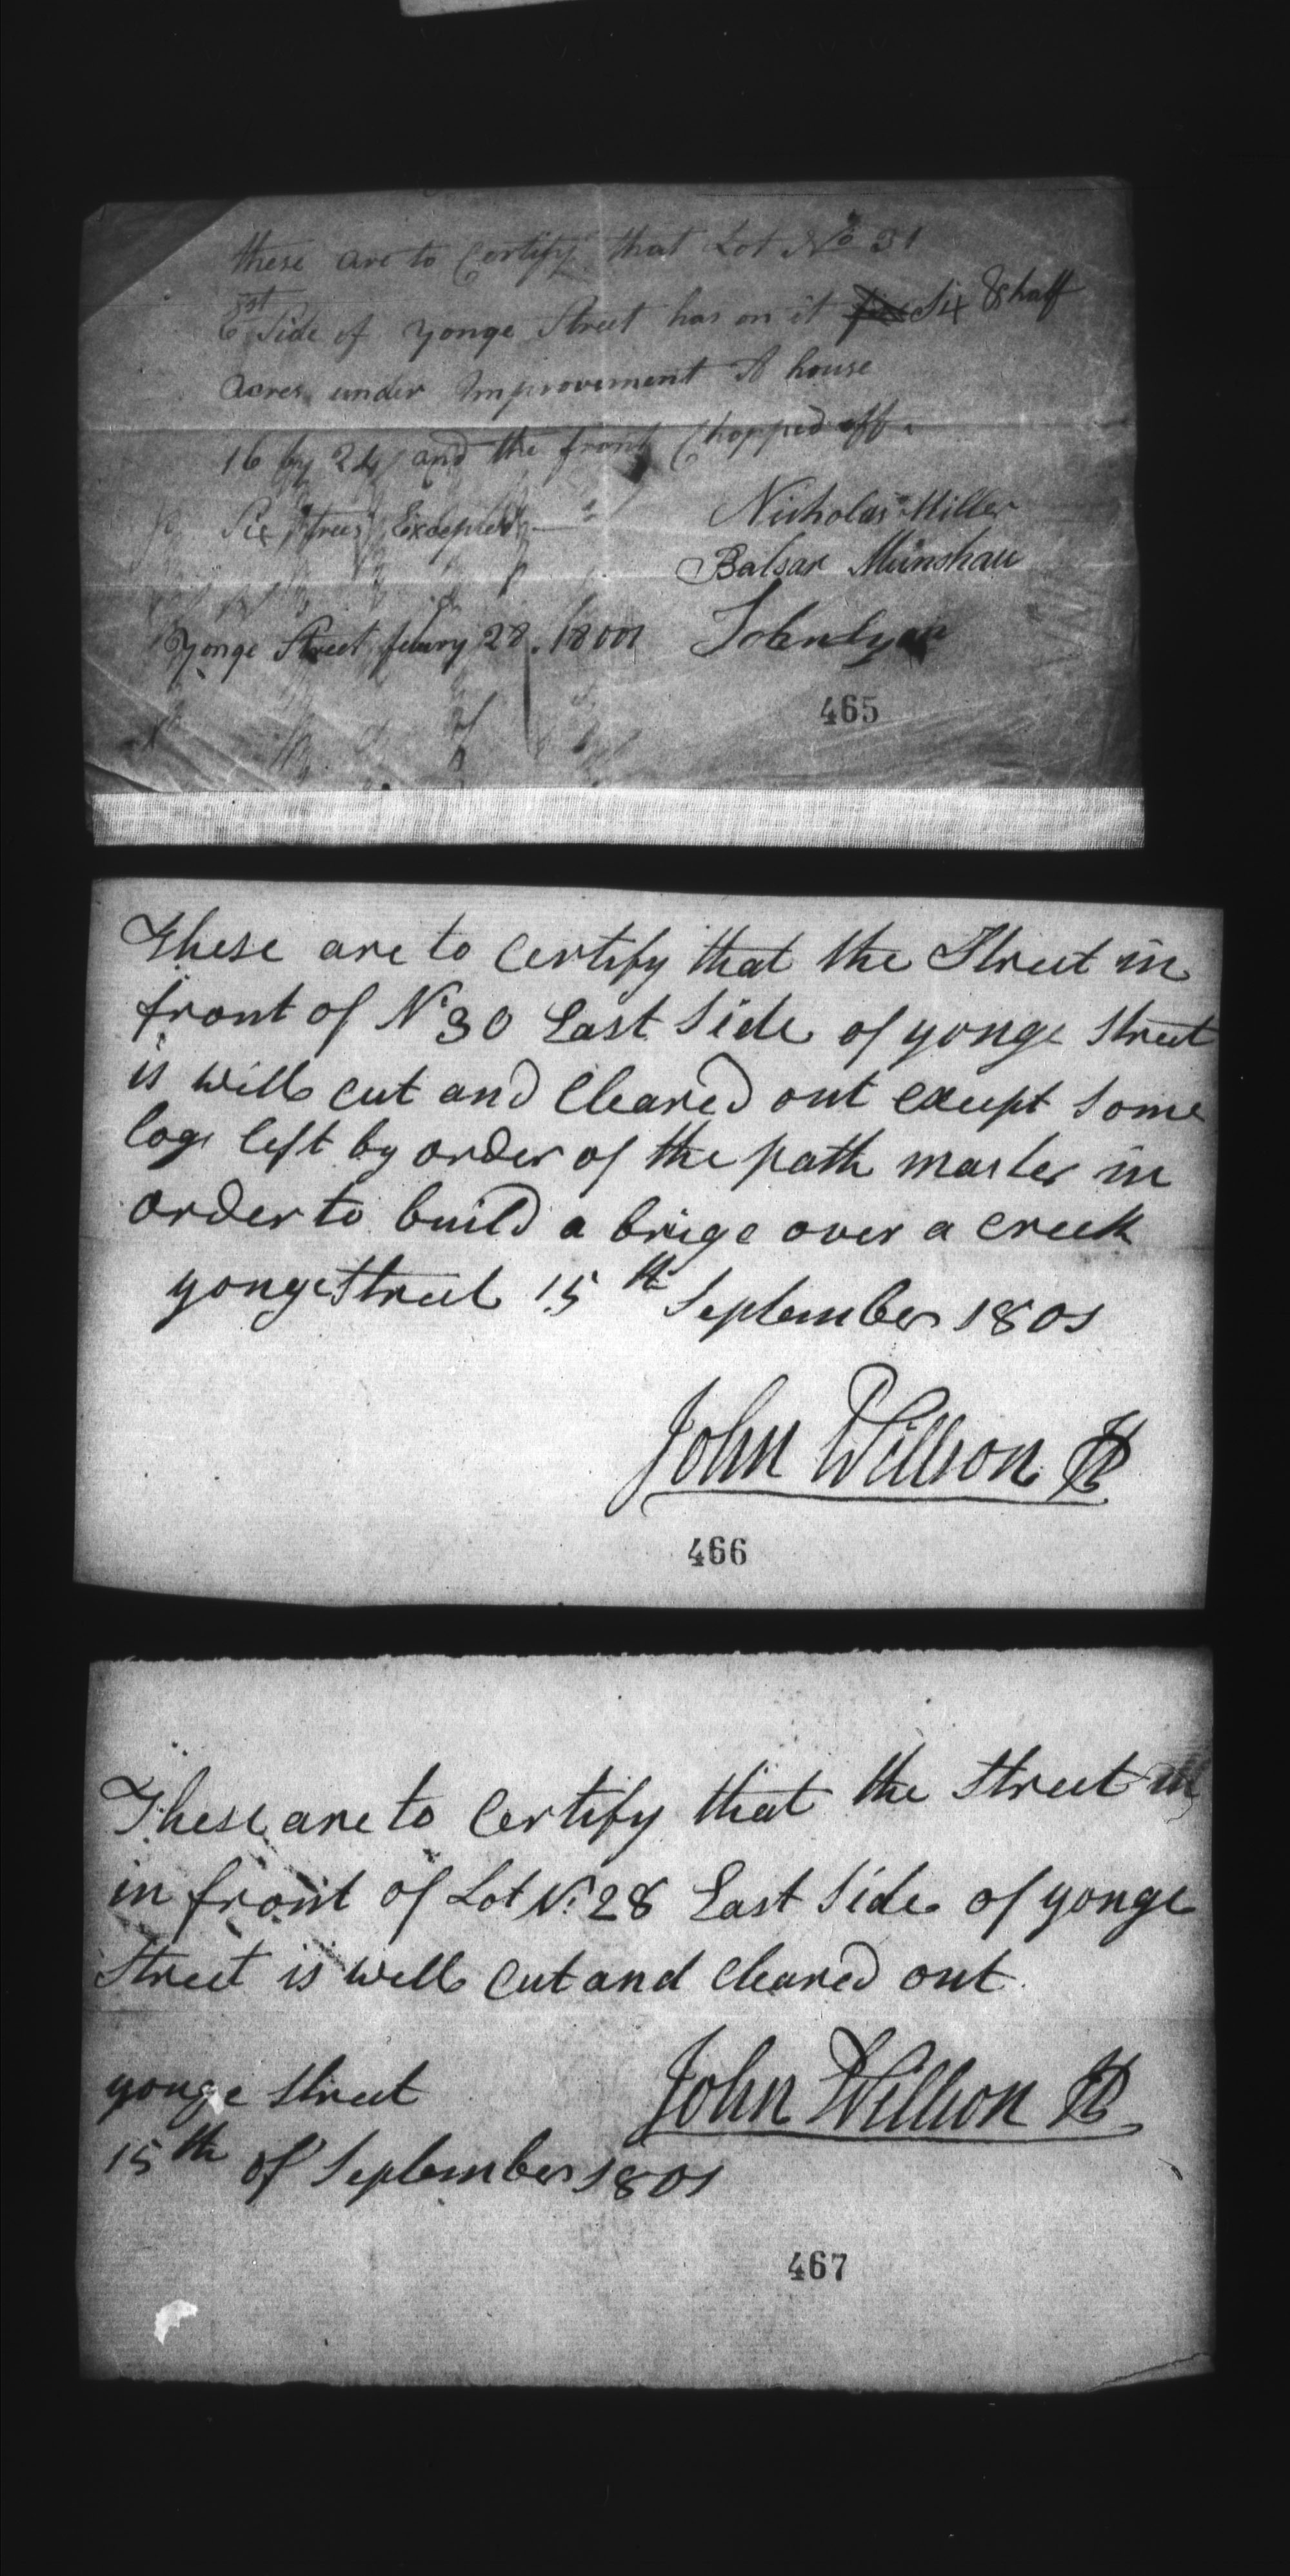 these are to Certify that Lot No 31
Est Side of Yonge Street has on it Six & half
Acres under Improvement A house
16 by 24 and the front Chopped off
Six trees Excepted
Nicholas Miller
Balsar Munshaw
Yonge Street feury 28. 18001
John Lyon
465
These are to Certify that the Street in
front of No 30 East Side of yonge Street
is well cut and Cleared out except some
logs left by order of the path master in
order to build a brige over a creek
yonge Street 15th September 1801
John Willson JP
466
These are to Certify that the Street in
in front of Lot No 28 East Side of yonge
Street is well Cut and Cleared out
John Willson JP
yonge Street
15th of September 1801
467